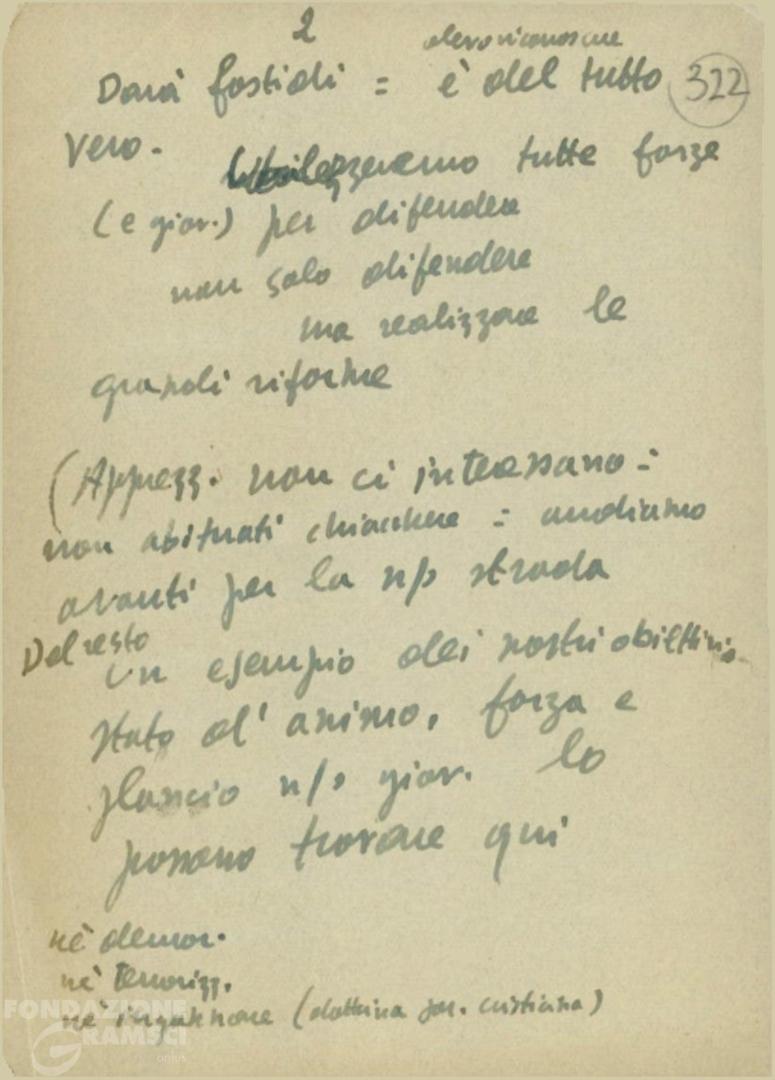 2
devo riconoscere
Darà fastidi = è del tutto 322
vero.
Utilizzeremo tutte forze
(e giov.) per difendere
non solo difendere
ma realizzare le
grandi riforme
(Apprezz. non ci interessano =
non abituati chiacchere = andiamo
avanti per la n/s strada
Del resto
un esempio dei nostri obiettivi
stato d'animo, forza e
slancio n/s giov. lo
possono trovare qui
nè demor.
nè terrorizz.
nè ingannare (dottrina soc. cristiana)
FONDAZIONE
GRAMSCI
onlus